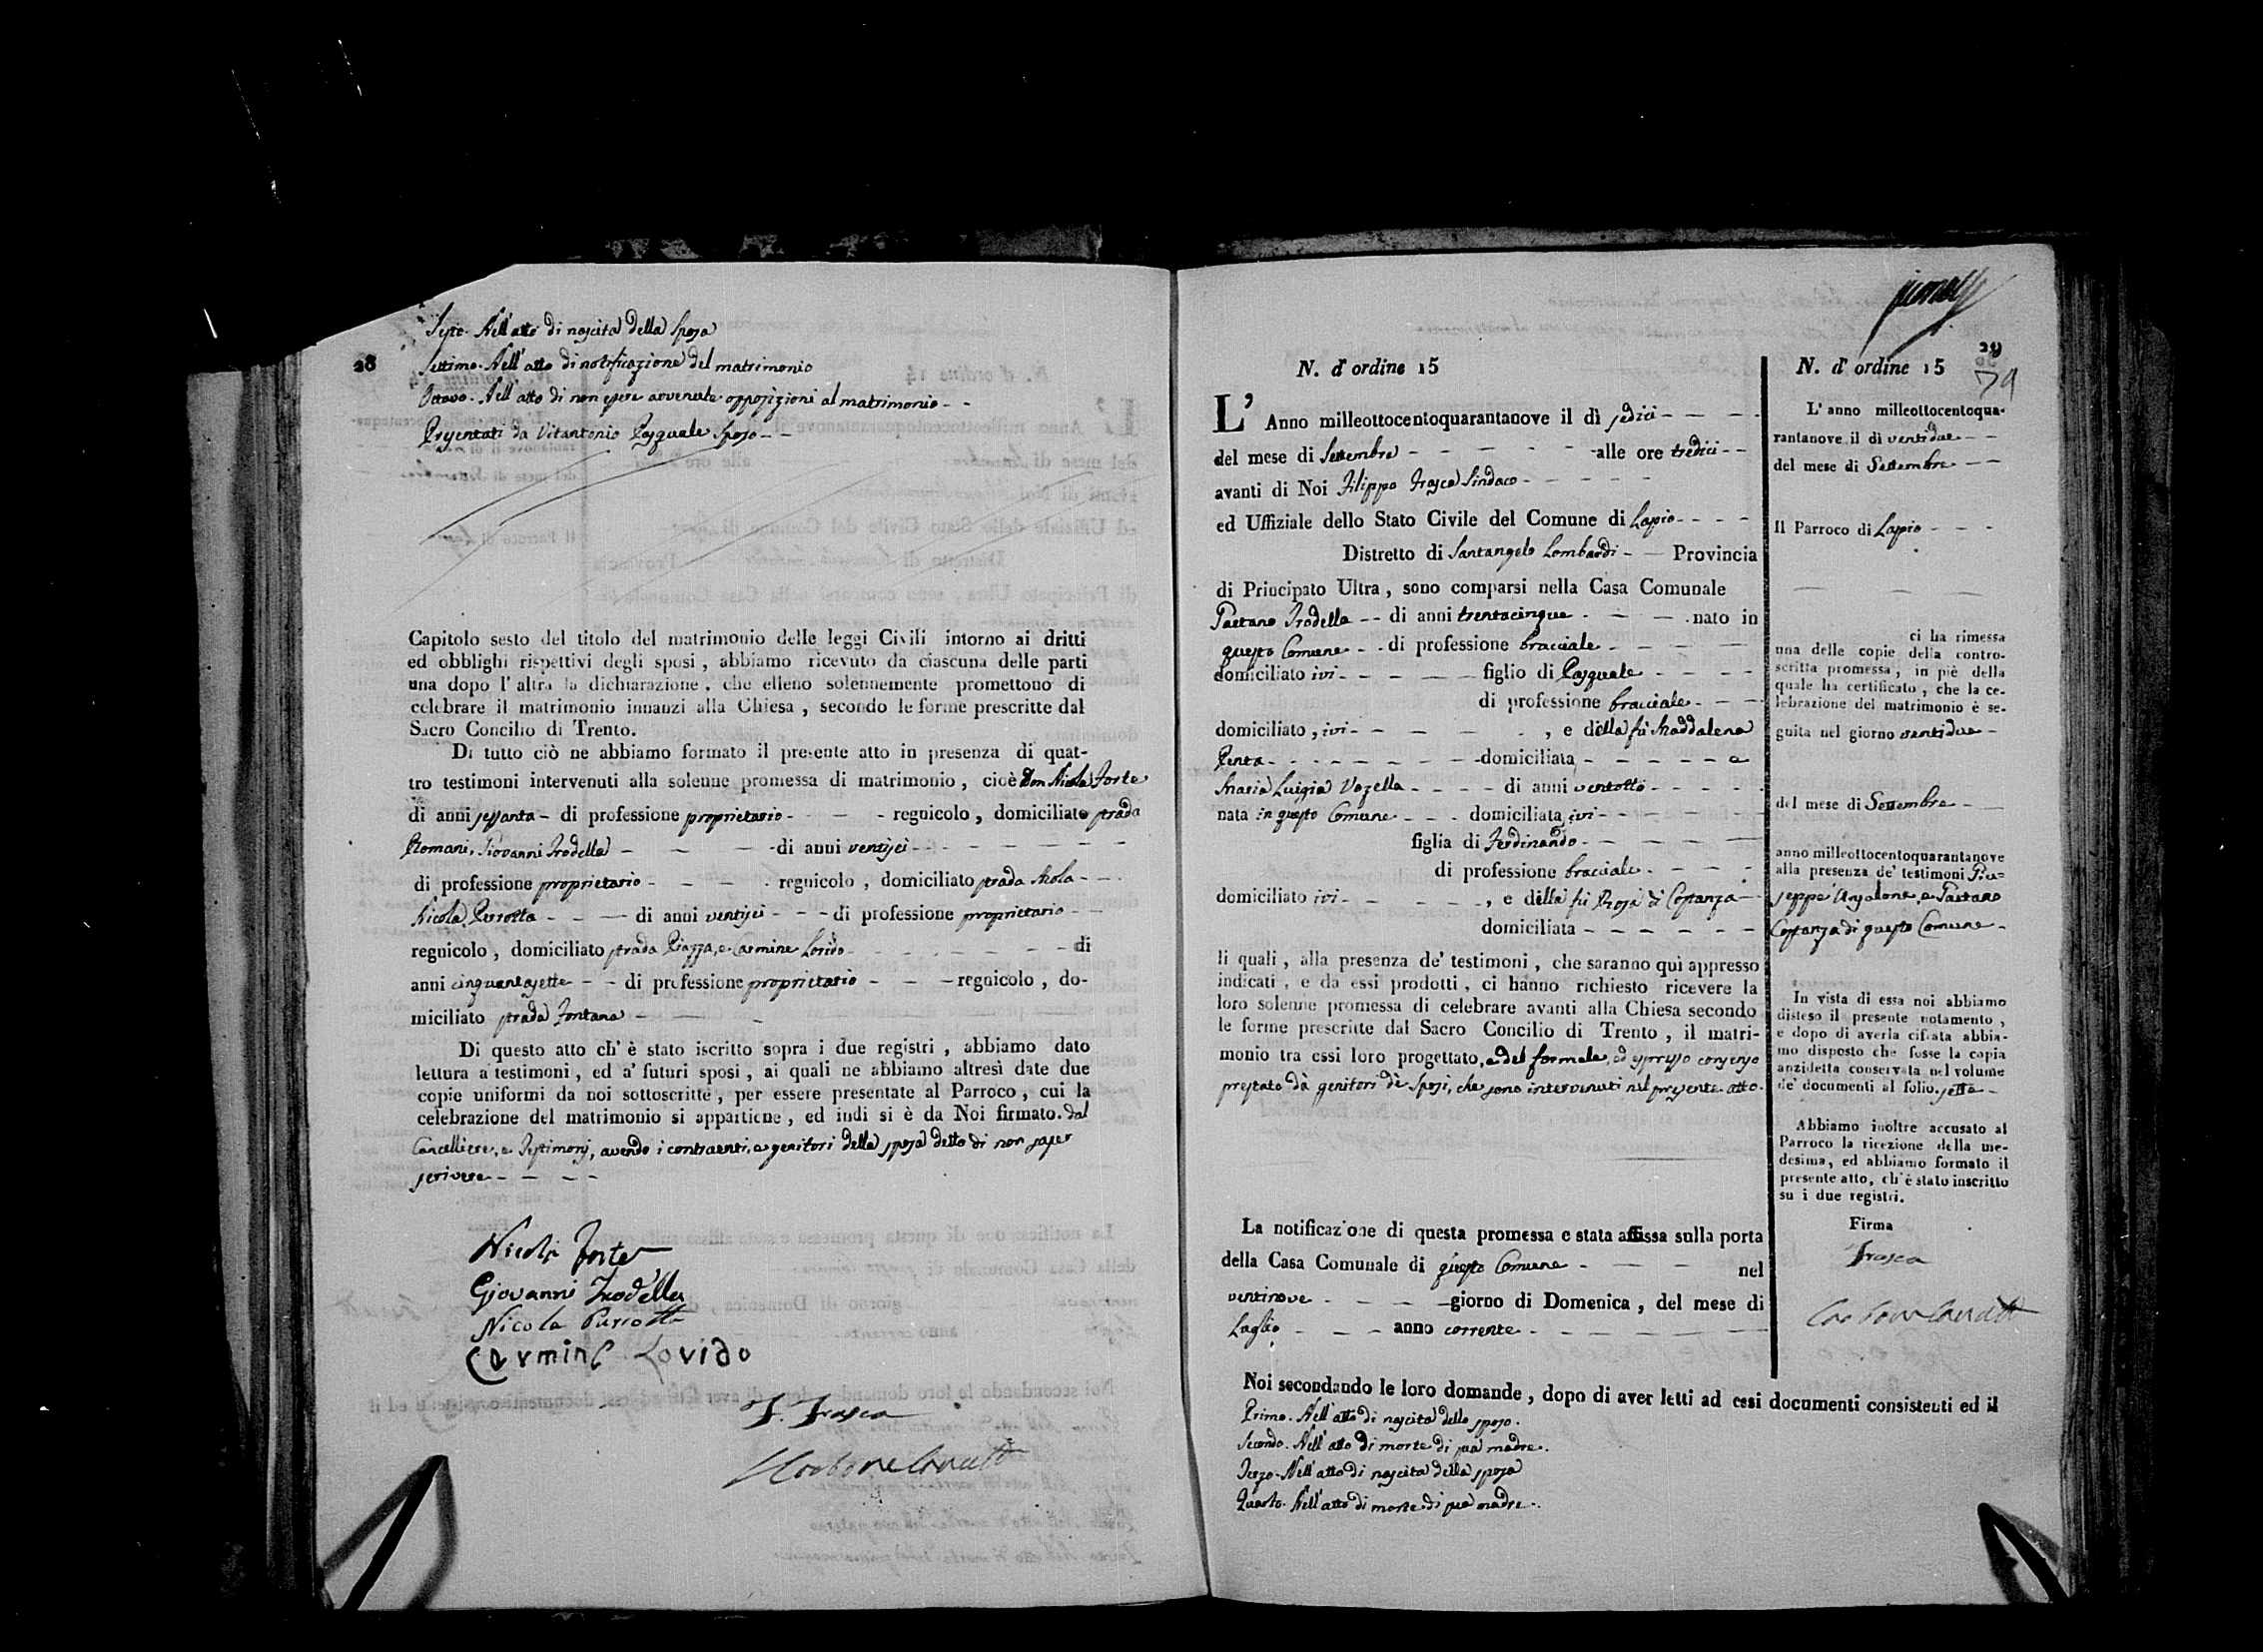 28
Sesto. Nell'atto di nascita della Sposa
Settimo. Nell'atto di notificazione del matrimonio
Ottavo. Nell'atto di non essere avvenute opposizioni al matrimonio - -
Presentati da Vitantonio Pasquale Sposo - -
Capitolo sesto del titolo del matrimonio delle leggi Civili intorno ai dritti
ed obblighi rispettivi degli sposi, abbiamo ricevuto da ciascuna delle parti
una dopo l'altra la dichiarazione, che elleno solennemente promettono di
celebrare il matrimonio innanzi alla Chiesa, secondo le forme prescritte dal
Sacro Concilio di Trento.
Di tutto ciò ne abbiamo formato il presente atto in presenza di quat-
tro testimoni intervenuti alla solenne promessa di matrimonio, cioè Don Nicola Forte
di anni sessanta - di professione proprietario - - - regnicolo, domiciliato strada
Romani, Giovanni Frodella - - - di anni ventisei - - - - - - - -
di professione proprietario - - - - regnicolo, domiciliato strada Mola - - -
Nicola Perrotta - - - di anni ventisei - - - di professione proprietario - -
regnicolo, domiciliato strada Piazza, e Carmine Lovido - - - - - - - di
anni cinquantasette - - di professione proprietario - - - regnicolo, do-
miciliato strada Fontana - - -
Di questo atto ch'è stato iscritto sopra i due registri, abbiamo dato
lettura a' testimoni, ed a' futuri sposi, ai quali ne abbiamo altresì date due
copie uniformi da noi sottoscritte, per essere presentate al Parroco, cui la
celebrazione del matrimonio si appartiene, ed indi si è da Noi firmato. dal
Cancelliere, e Testimonj, avendo i contraenti, e genitori della sposa detto di non saper
scrivere - - - -
Nicola Forte
Giovanni Frodella
Nicola Perrotta
Carmine Lovido
F. Frasca
29
79
N. d'ordine 15
L'Anno milleottocentoquarantanove il dì sedici - - - -
del mese di Settembre - - - - - alle ore tredici - -
avanti di Noi Filippo Frasca Sindaco - - - - -
ed Uffiziale dello Stato Civile del Comune di Lapio - - - -
Distretto di Santangelo Lombardi - - Provincia
di Principato Ultra, sono comparsi nella Casa Comunale
Gaetano Frodella - - di anni trentacinque - - - nato in
questo Comune - - di professione bracciale - - - -
domiciliato ivi - - - - - figlio di Pasquale - - - -
di professione bracciale - - -
domiciliato, ivi - - - - - , e della fù Maddalena
Penta - - - - - - - - domiciliata - - - - - e
Maria Luigia Vozella - - - - di anni ventotto - - - - -
nata in questo Comune - - - domiciliata ivi - - - - - -
figlia di Ferdinando - - - - -
di professione bracciale - - - -
domiciliato ivi - - - - - - , e della fù Rosa di Costanza -
domiciliata - - - - - -
li quali, alla presenza de' testimoni, che saranno quì appresso
indicati, e da essi prodotti, ci hanno richiesto ricevere la
loro solenne promessa di celebrare avanti alla Chiesa secondo
le forme prescritte dal Sacro Concilio di Trento, il matri-
monio tra essi loro progettato, e del formale, ed espresso consenso
prestato dà genitori dè sposi, che sono intervenuti nel presente atto.
La notificazione di questa promessa e stata affissa sulla porta
della Casa Comunale di questo Comune - - - nel
ventinove - - - - giorno di Domenica, del mese di
Luglio - - - anno corrente - - - - - - -
Noi secondando le loro domande, dopo di aver letti ad essi documenti consistenti ed il
Primo. Nell'atto di nascita dello sposo.
Secondo. Nell'atto di morte di sua madre.
Terzo. Nell'atto di nascita della sposa
Quarto. Nell'atto di morte di sua madre.
N. d'ordine 15
L'anno milleottocentoqua-
rantanove il dì ventidue - -
del mese di Settembre - -
Il Parroco di Lapio - - -
ci ha rimessa
una delle copie della contro-
scritta promessa, in piè della
quale ha certificato, che la ce-
lebrazione del matrimonio è se-
guita nel giorno ventidue -
del mese di Settembre - -
anno milleottocentoquarantanove
alla presenza de' testimoni Giu=
seppe Anzalone, e Gaetano
Costanza di questo Comune -
In vista di essa noi abbiamo
disteso il presente notamento,
e dopo di averla cifrata abbia-
mo disposto che fusse la copia
anzidetta conservata nel volume
de' documenti al folio sette -
Abbiamo inoltre accusato al
Parroco la ricezione della me-
desima, ed abbiamo formato il
presente atto, ch'è stato inscritto
su i due registri.
Firma
Frasca